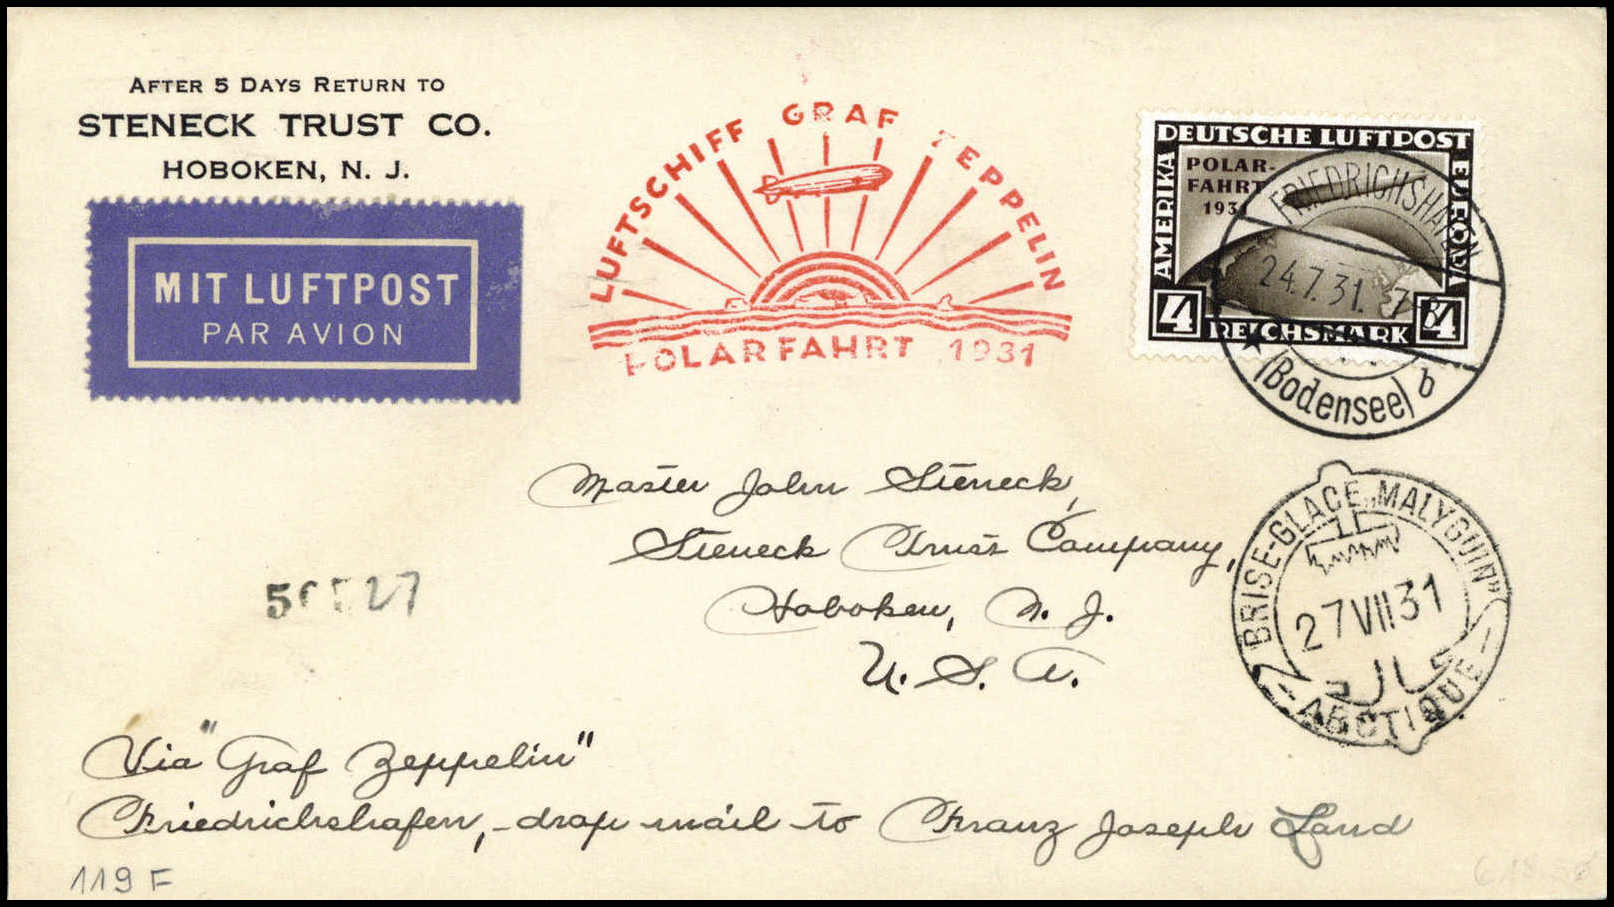 AFTER 5 DAYS RETURN TO
STENECK TRUST CO.
HOBOKEN, N. J.
MIT LUFTPOST
PAR AVION
LUFTSCHIFF GRAF ZEPPELIN
POLARFAHRT 1931
DEUTSCHE LUFTPOST
AMERIKA
EUROPA
POLAR-
FAHRT
1931
4 REICHSMARK 4
FRIEDRICHSHAFEN
24.7.31. 7
(Bodensee) b
Master John Steneck,
Steneck Trust Company,
Hoboken, N. J.
U. S. A.
BRISE-GLACE „MALYGUIN"
27 VII 31
ARCTIQUE
Via "Graf Zeppelin"
Friedrichshafen, - drop mail to Franz Joseph Land
119 F